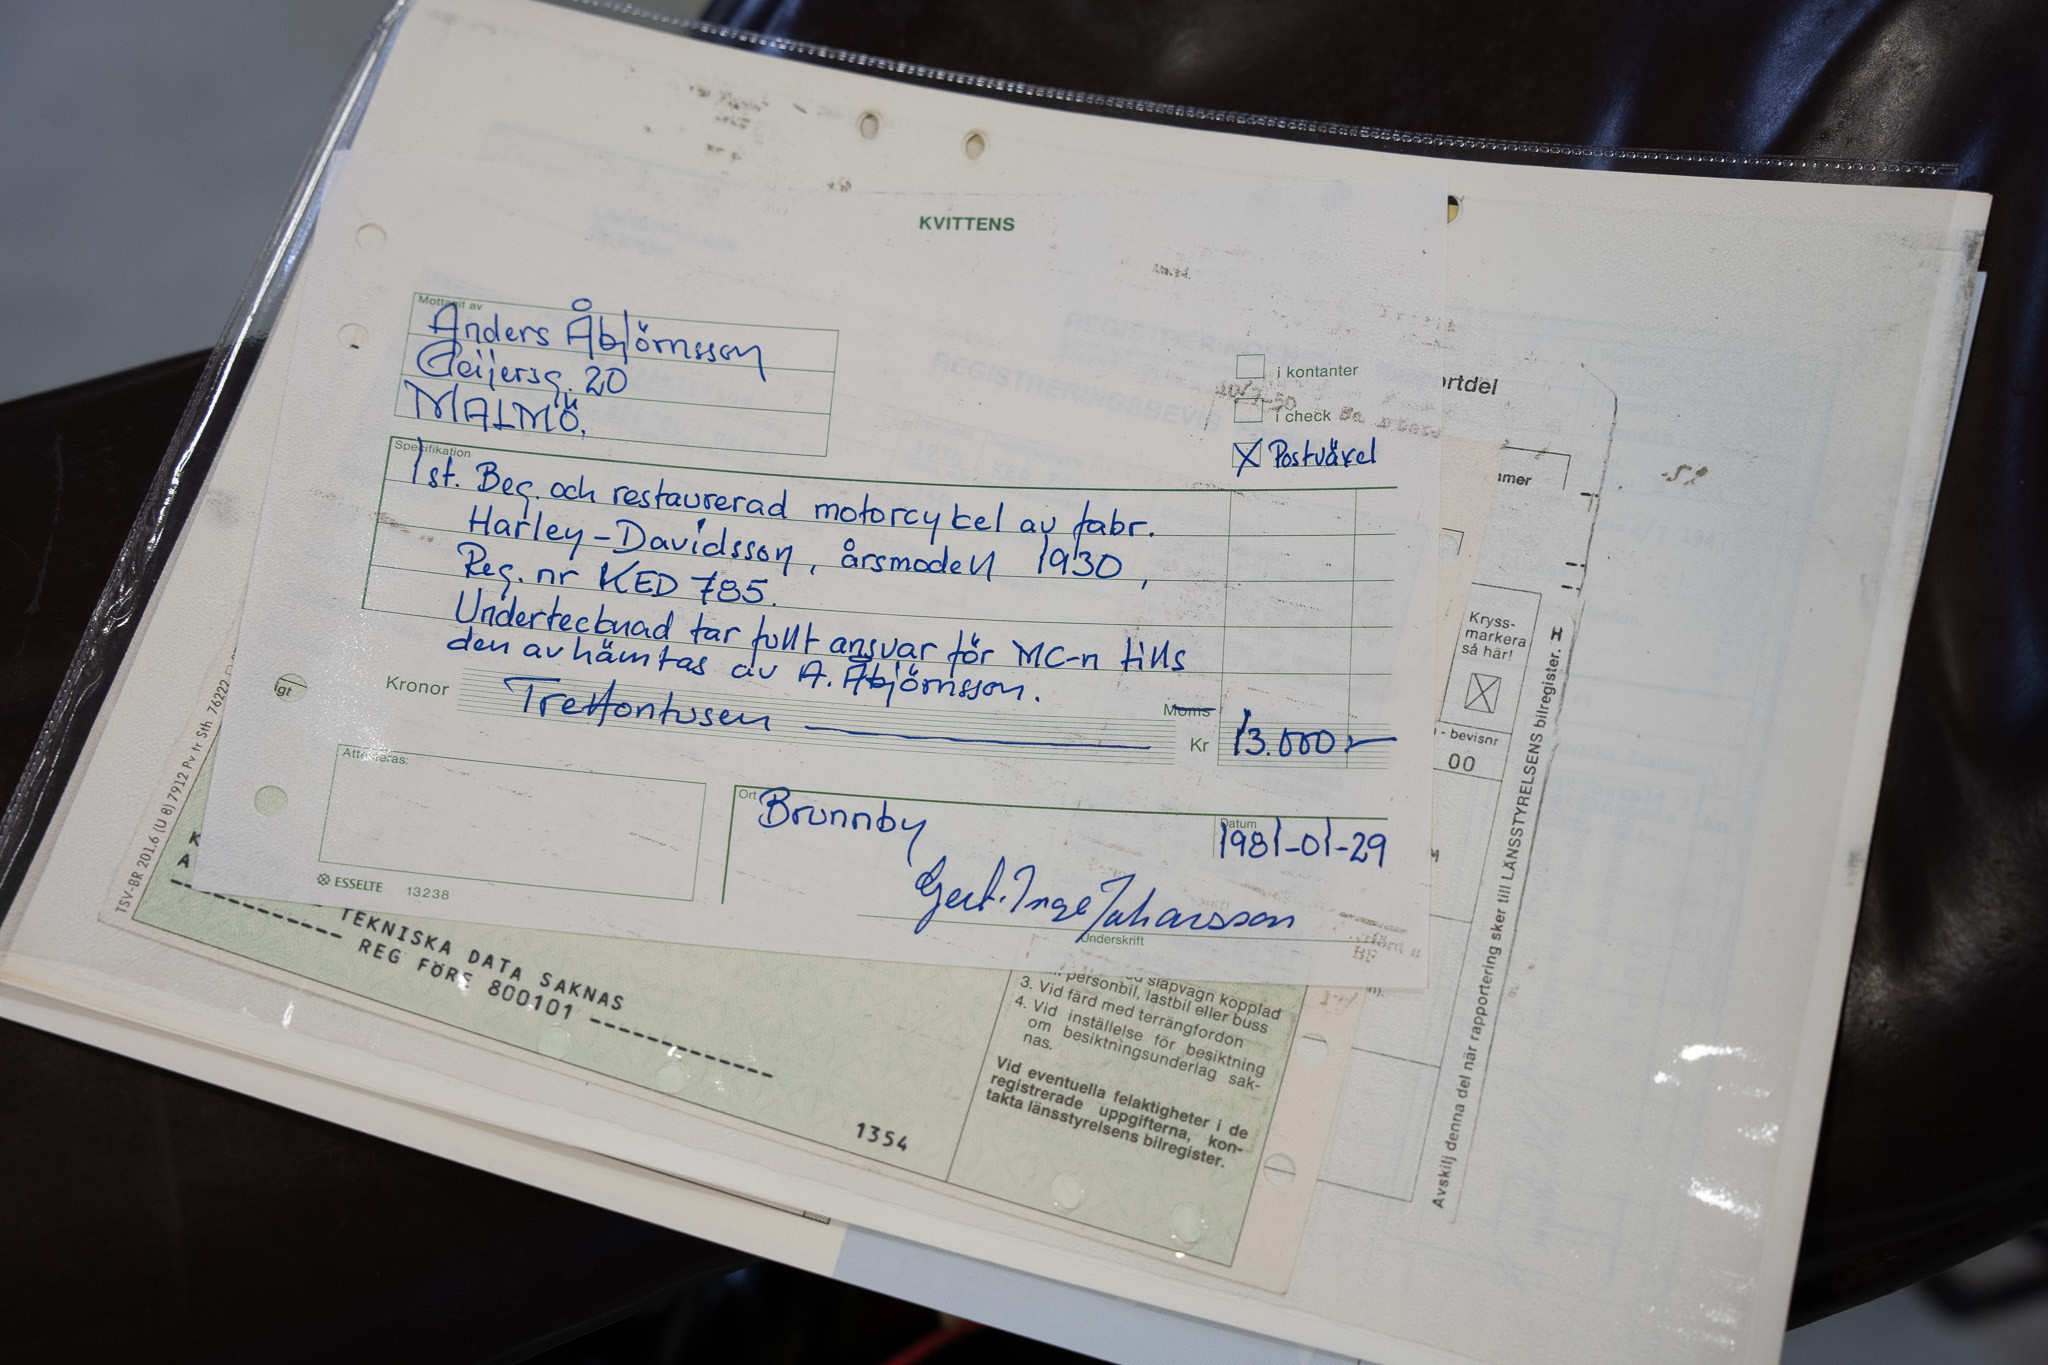 KVITTENS
Mottagit av
Anders Åbjörnsson
Geijersg. 20
MALMÖ.
i kontanter
i check
Postväxel
Specifikation
1st. Beg. och restaurerad motorcykel av fabr.
Harley-Davidsson, årsmodell 1930,
Reg. nr KED 785.
Undertecknad tar fullt ansvar för MC-n tills
den avhämtas av A. Åbjörnsson.
Kronor Trettontusen
Moms
Kr 13.000:-
Attesteras:
Ort
Brunnby
Datum
1981-01-29
Gert-Inge Johansson
Underskrift
ESSELTE 13238
REGISTRERINGSBEVIS
ortdel
mmer
Kryss-
markera
så här!
- bevisnr
00
Avskilj denna del när rapportering sker till LÄNSSTYRELSENS bilregister. H
igt
TSV-BR 201.6 (U 8) 7912 Pv tr Sth 76222
K
A
TEKNISKA DATA SAKNAS
REG FÖRE 800101
1354
släpvagn kopplad
personbil, lastbil eller buss
3. Vid färd med terrängfordon
4. Vid inställelse för besiktning
om besiktningsunderlag sak-
nas.
Vid eventuella felaktigheter i de
registrerade uppgifterna, kon-
takta länsstyrelsens bilregister.